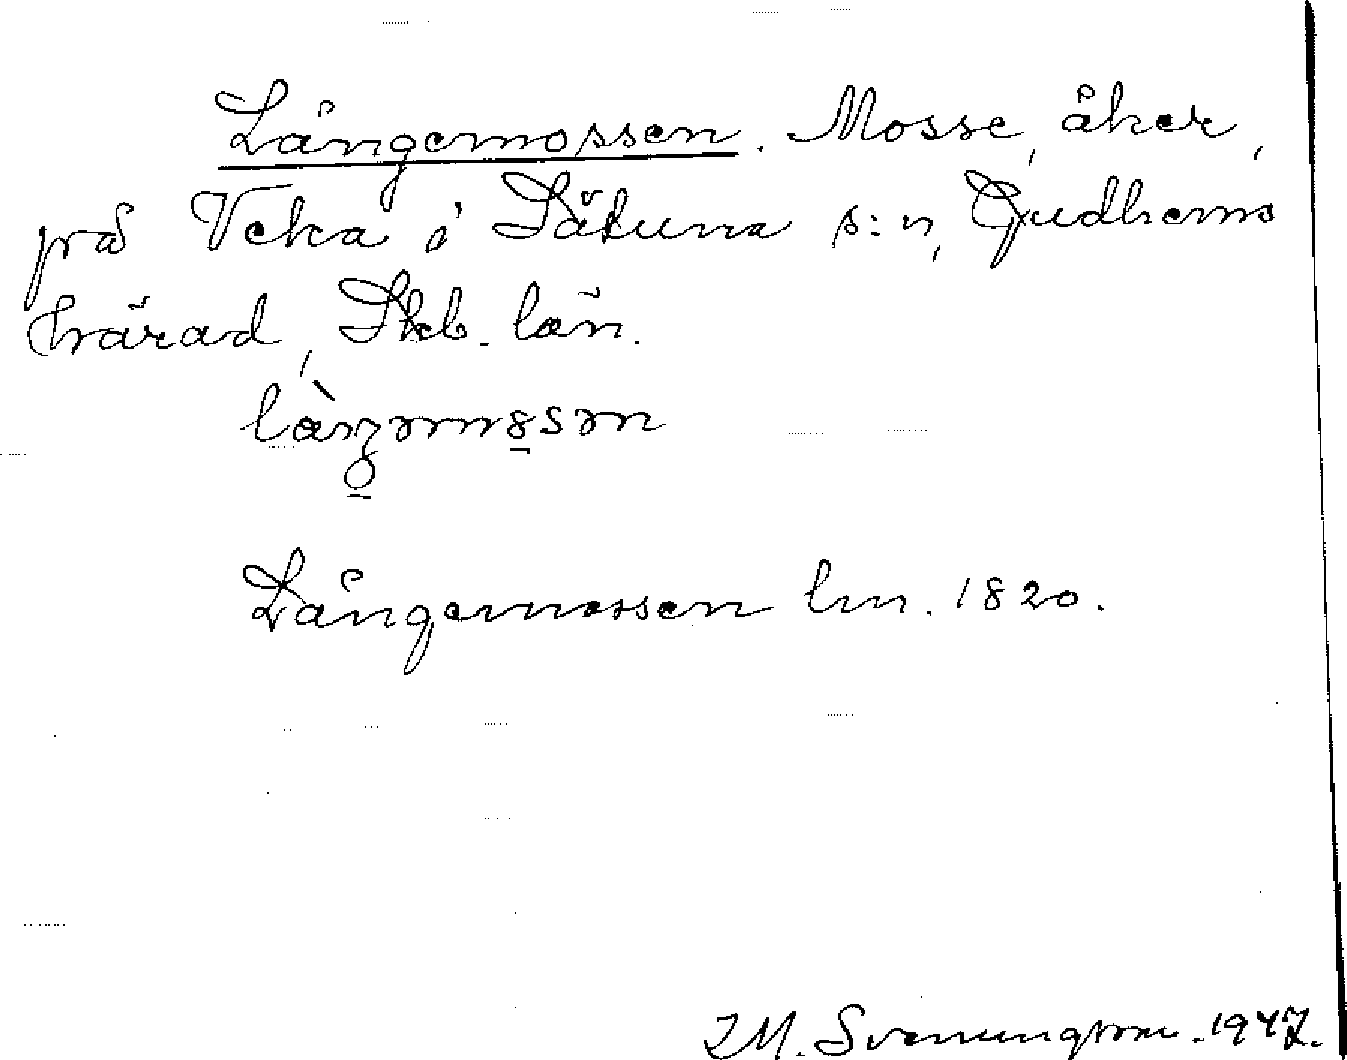 Långemossen. Mosse, åker,
på Veka i Sätuna s:n, Gudhems
härad, Skb. län.
Långemossen lm. 1820.
I M. Svenungsson. 1947.